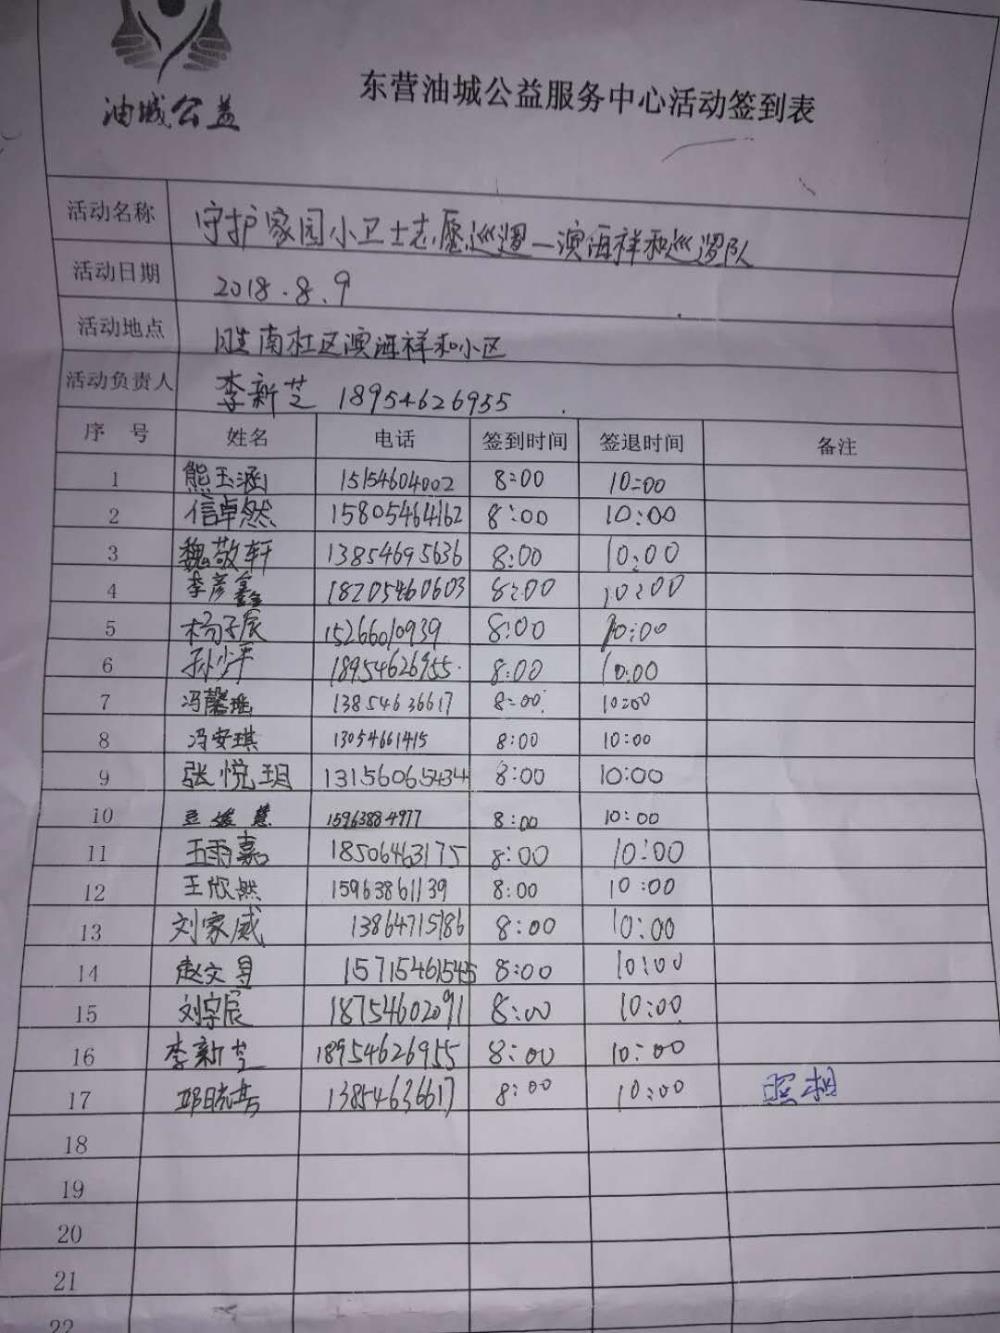 油城公益
东营油城公益服务中心活动签到表
活动名称 守护家园小卫士志愿巡逻—澳海祥和巡逻队
活动日期 2018.8.9
活动地点 胜南社区澳海祥和小区
活动负责人 李新芝 18954626955
序 号 姓名 电话 签到时间 签退时间 备注
1 熊玉涵 15154604002 8:00 10:00
2 信卓然 15805464162 8:00 10:00
3 魏敬轩 13854695636 8:00 10:00
4 李彦鑫 18205460603 8:00 10:00
5 杨子宸 15266010939 8:00 10:00
6 孙少平 18954626955 8:00 10:00
7 冯馨瑶 13854636617 8:00 10:00
8 冯安琪 13054661415 8:00 10:00
9 张悦玥 8:00 10:00
10 15963884977 8:00 10:00
11 王雨嘉 18506463175 8:00 10:00
12 王欣然 15963861139 8:00 10:00
13 刘家威 13864715786 8:00 10:00
14 赵文 15715461545 8:00 10:00
15 刘宇宸 18754602091 8:00 10:00
16 李新芝 18954626955 8:00 10:00
17 13854636617 8:00 10:00 照相
18
19
20
21
22